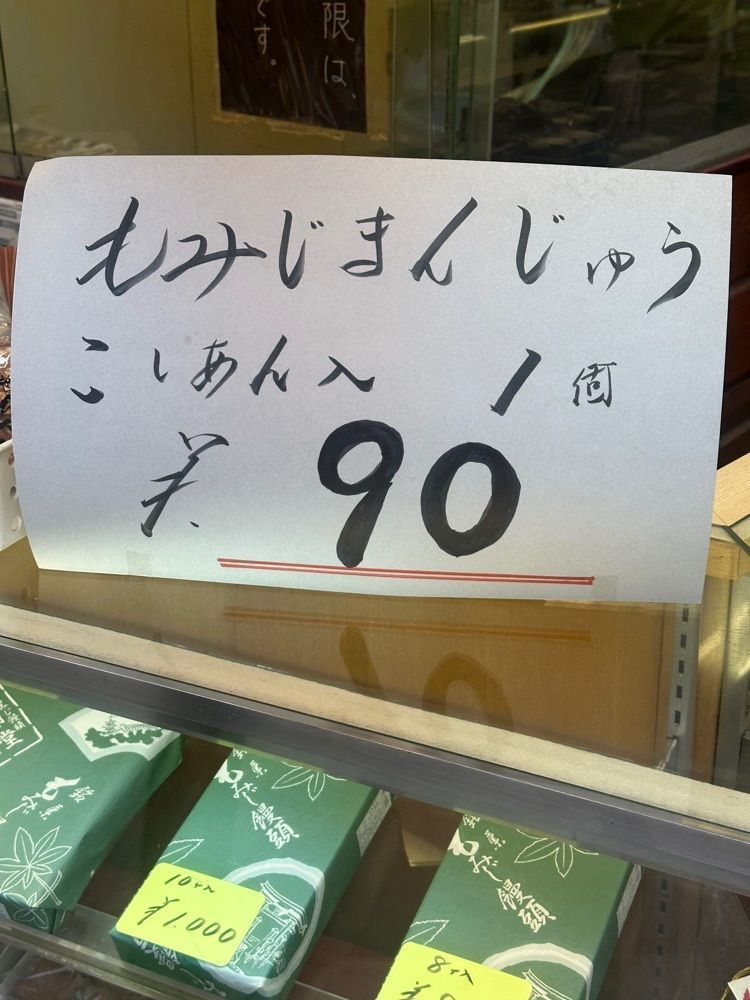 限は、
です。
もみじまんじゅう
こしあん入 1個
¥ 90
堂
銘菓
もみじ饅頭
10ヶ入
¥1.000
銘菓
もみじ饅頭
8ヶ入